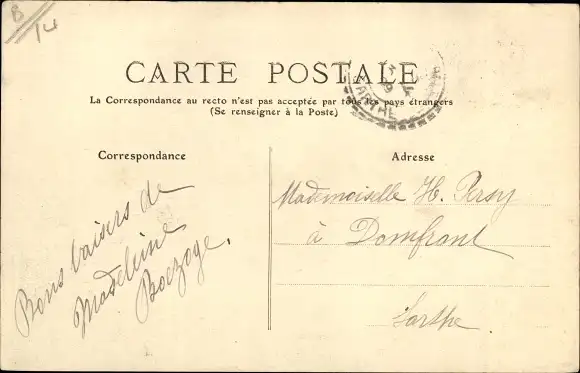 B
14
CARTE POSTALE
La Correspondance au recto n'est pas acceptée par tous les pays étrangers
(Se renseigner à la Poste)
SARTHE
Correspondance
Bons baisers de
Madeleine
Adresse
Mademoiselle H. Persy
à Domfront
Sarthe